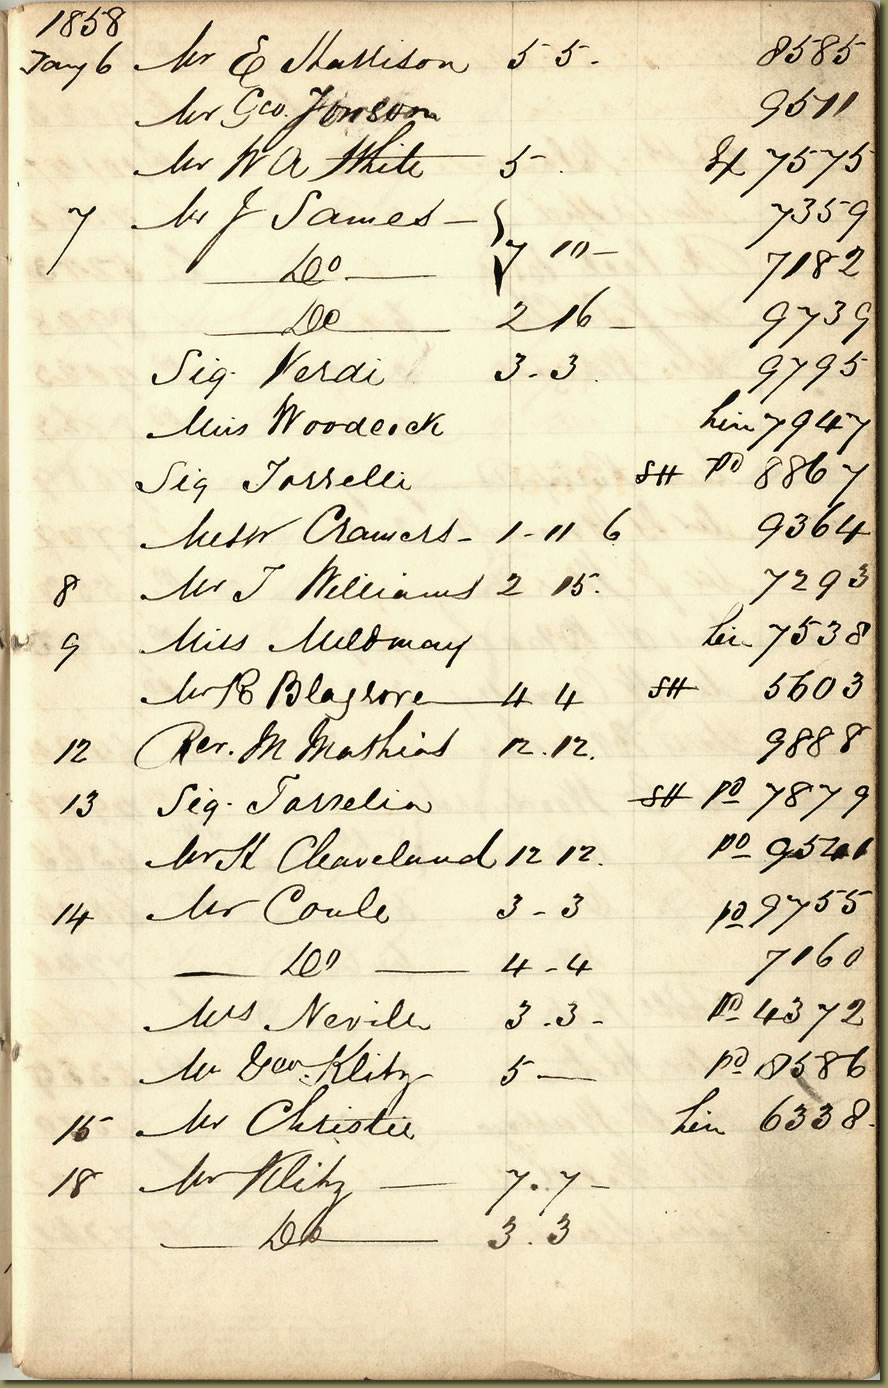 1858
Jany 6 Mr E Harrison 5 5 - 8585
Mr Geo. 9511
Mr W A White 5 7575
7 Mr J James 7359
Do 7 10 - 7182
Do 2 16 - 9739
Sig. Verdi 3 - 3 9795
Miss Woodcock 7947
Sig SH pd 8867
Messrs Cramers - 1 - 11 6 9364
8 Mr T Williams 2 15. 7293
9 Miss Mildmay 7538
Mr R Blagrove 4 4 SH 5603
12 Rev. M Mathias 12.12. 9888
13 Sig. SH pd 7879
Mr H Cleaveland 12 12. pd
14 Mr Coule 3 - 3 pd 9755
Do 4 - 4 7160
Mrs Neville 3 . 3 - pd 4372
Mr Geo. Klitz 5 — pd 8586
15 Mr Christie 6338.
18 Mr Klitz — 7 . 7 -
Do 3 . 3